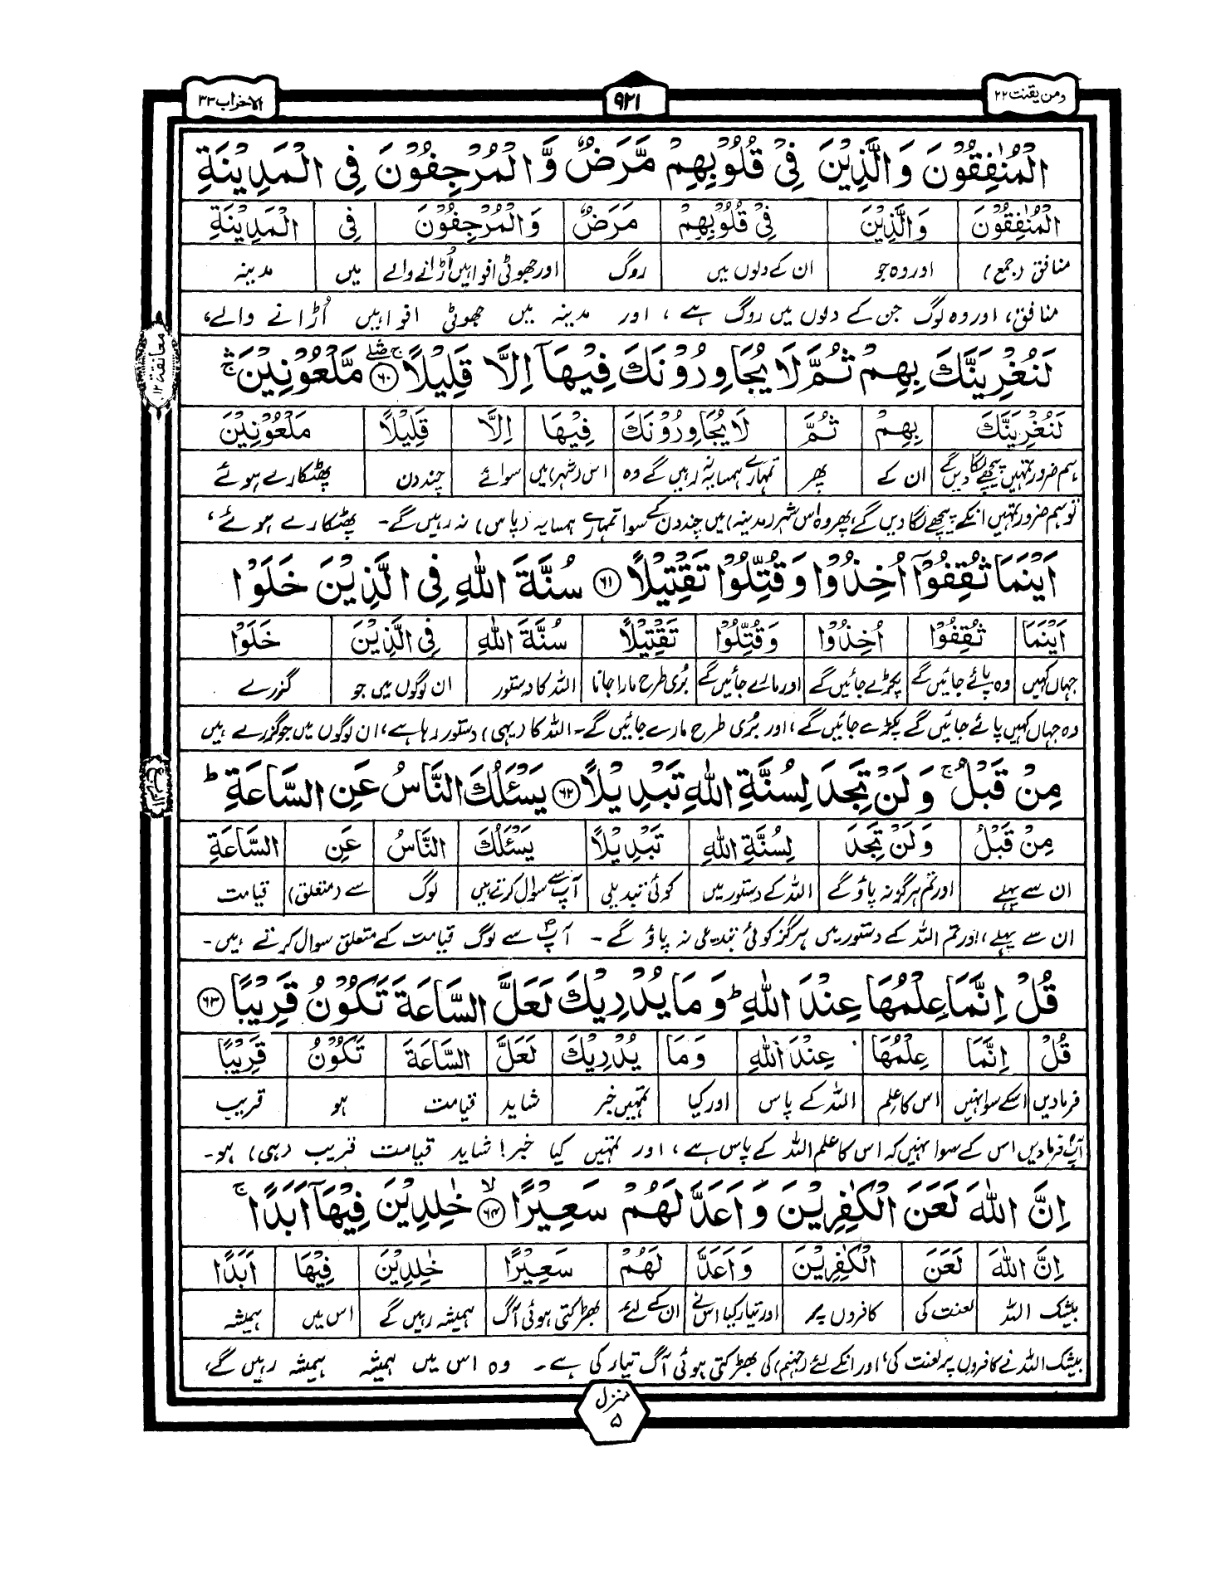 ومن یقنت ۲۲
۹۲۱
الاحزاب ۳۳
الْمُنٰفِقُوْنَ وَالَّذِیْنَ فِیْ قُلُوْبِهِمْ مَّرَضٌ وَّالْمُرْجِفُوْنَ فِی الْمَدِیْنَةِ
الْمُنٰفِقُوْنَ وَالَّذِیْنَ فِیْ قُلُوْبِهِمْ مَرَضٌ وَالْمُرْجِفُوْنَ فِی الْمَدِیْنَةِ
منافق (جمع) اور وہ جو ان کے دلوں میں روگ اور جھوٹی افواہیں اُڑانے والے میں مدینہ
منافق، اور وہ لوگ جن کے دلوں میں روگ ہے ، اور مدینہ میں جھوٹی افواہیں اُڑانے والے،
لَنُغْرِیَنَّكَ بِهِمْ ثُمَّ لَا یُجَاوِرُوْنَكَ فِیْهَاۤ اِلَّا قَلِیْلًا ۛۚ ۖ ۶۰ مَّلْعُوْنِیْنَ ۛۚ
معانقة ۱۲
لَنُغْرِیَنَّكَ بِهِمْ ثُمَّ لَا یُجَاوِرُوْنَكَ فِیْهَا اِلَّا قَلِیْلًا مَلْعُوْنِیْنَ
ہم ضرور تمہیں پیچھے لگا دیں گے ان کے پھر تمہارے ہمسایہ نہ رہیں گے وہ اس (شہر) میں سوائے چند دن پھٹکارے ہوئے
تو ہم ضرور تمہیں انکے پیچھے لگا دیں گے، پھر وہ اس شہر (مدینہ) میں چند دن کے سوا تمہارے ہمسایہ (پاس) نہ رہیں گے۔ پھٹکارے ہوئے،
اَیْنَمَا ثُقِفُوْۤا اُخِذُوْا وَقُتِّلُوْا تَقْتِیْلًا ۶۱ سُنَّةَ اللّٰهِ فِی الَّذِیْنَ خَلَوْا
اَیْنَمَا ثُقِفُوْا اُخِذُوْا وَقُتِّلُوْا تَقْتِیْلًا سُنَّةَ اللّٰهِ فِی الَّذِیْنَ خَلَوْا
جہاں کہیں وہ پائے جائیں گے پکڑے جائیں گے اور مارے جائیں گے بُری طرح مارا جانا اللہ کا دستور ان لوگوں میں جو گزرے
وہ جہاں کہیں پائے جائیں گے پکڑے جائیں گے، اور بُری طرح مارے جائیں گے۔ اللہ کا (یہی) دستور رہا ہے، ان لوگوں میں جو گزرے ہیں
مِنْ قَبْلُ ۚ وَلَنْ تَجِدَ لِسُنَّةِ اللّٰهِ تَبْدِیْلًا ۶۲ یَسْـَٔلُكَ النَّاسُ عَنِ السَّاعَةِ ؕ
الربع
مِنْ قَبْلُ وَلَنْ تَجِدَ لِسُنَّةِ اللّٰهِ تَبْدِیْلًا یَسْـَٔلُكَ النَّاسُ عَنِ السَّاعَةِ
ان سے پہلے اور تم ہرگز نہ پاؤ گے اللہ کے دستور میں کوئی تبدیلی آپؐ سے سوال کرتے ہیں لوگ سے (متعلق) قیامت
ان سے پہلے، اور تم اللہ کے دستور میں ہرگز کوئی تبدیلی نہ پاؤ گے ۔ آپؐ سے لوگ قیامت کے متعلق سوال کرتے ہیں۔
قُلْ اِنَّمَا عِلْمُهَا عِنْدَ اللّٰهِ ؕ وَمَا یُدْرِیْكَ لَعَلَّ السَّاعَةَ تَكُوْنُ قَرِیْبًا ۶۳
قُلْ اِنَّمَا عِلْمُهَا عِنْدَ اللّٰهِ وَمَا یُدْرِیْكَ لَعَلَّ السَّاعَةَ تَكُوْنُ قَرِیْبًا
فرمادیں اسکے سوا نہیں اس کا علم اللہ کے پاس اور کیا تمہیں خبر شاید قیامت ہو قریب
آپؐ فرمادیں اس کے سوا نہیں کہ اس کا علم اللہ کے پاس ہے ، اور تمہیں کیا خبر! شاید قیامت قریب (ہی) ہو۔
اِنَّ اللّٰهَ لَعَنَ الْكٰفِرِیْنَ وَاَعَدَّ لَهُمْ سَعِیْرًا ۙ ۶۴ خٰلِدِیْنَ فِیْهَاۤ اَبَدًا ۚ
اِنَّ اللّٰهَ لَعَنَ الْكٰفِرِیْنَ وَاَعَدَّ لَهُمْ سَعِیْرًا خٰلِدِیْنَ فِیْهَا اَبَدًا
بیشک اللہ لعنت کی کافروں پر اور تیار کیا اس نے ان کے لئے بھڑکتی ہوئی آگ ہمیشہ رہیں گے اس میں ہمیشہ
بیشک اللہ نے کافروں پر لعنت کی، اور انکے لئے (جہنم) کی بھڑکتی ہوئی آگ تیار کی ہے۔ وہ اس میں ہمیشہ ہمیشہ رہیں گے،
منزل ۵